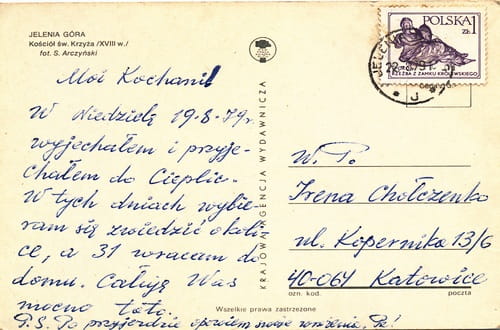 JELENIA GÓRA
Kościół św. Krzyża /XVIII w./
fot. S. Arczyński
Moi Kochani!
W Niedzielę 19-8-79r.
wyjechałem i przyje-
chałem do Cieplic.
W tych dniach wybie-
ram się zwiedzić okoli-
ce, a 31 wracam do
domu. Całuję Was
mocno tata.
P.S. Po przyjeździe opowiem swoje wrażenia. Pa!
KRAJOWA AGENCJA WYDAWNICZA
POLSKA
ZŁ 1
RZEŹBA Z ZAMKU KRÓLEWSKIEGO
W. P.
Irena Chółczenko
ul. Kopernika 13/6
40-064 Katowice
ozn. kod. poczta
Wszelkie prawa zastrzeżone